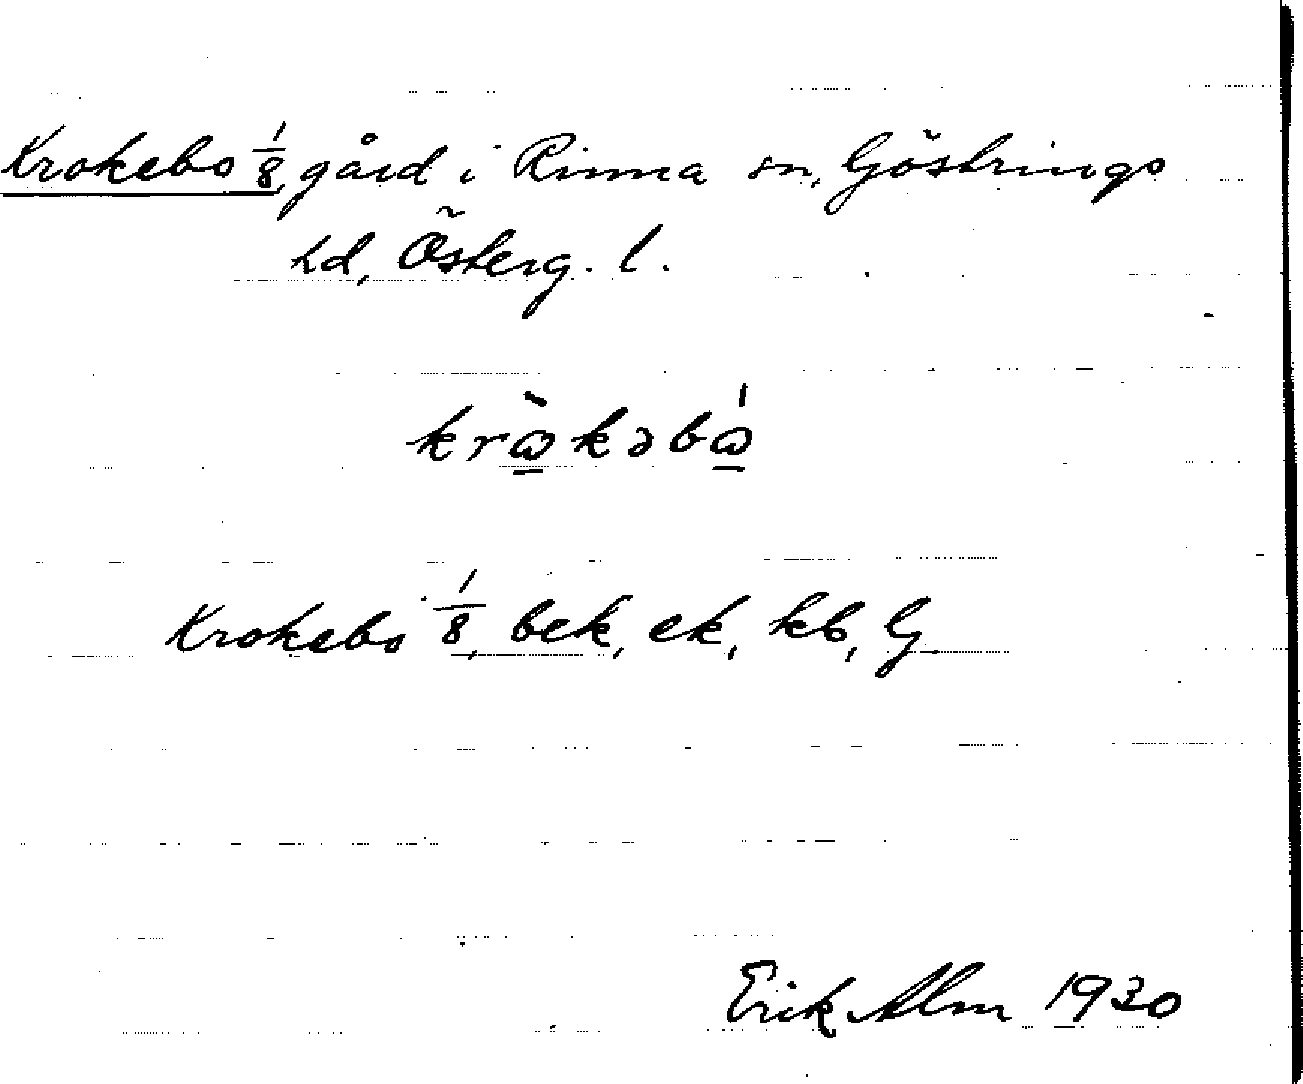 Krokebo 1/8, gård i Rinna sn, Göstrings
hd, Österg. l.
krὼ̱kəbώ̱
Krokebo 1/8, bek, ek, kb, G.
Erik Alm 1930